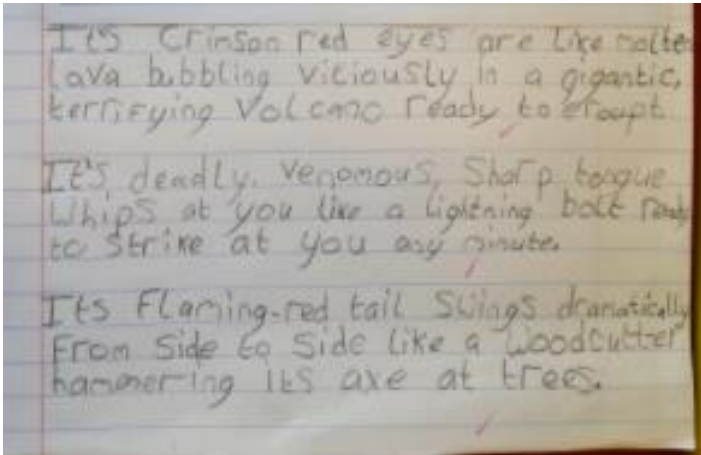 Its Crimson red eyes are like molten
lava bubbling viciously in a gigantic,
terrifying Volcano ready to eroupt
It's deadly, venomous, Sharp tongue
Whips at you like a lightning bolt ready
to strike at you any minute.
Its Flaming-red tail Swings dramatically
From Side to Side like a Woodcutter
hammering its axe at trees.